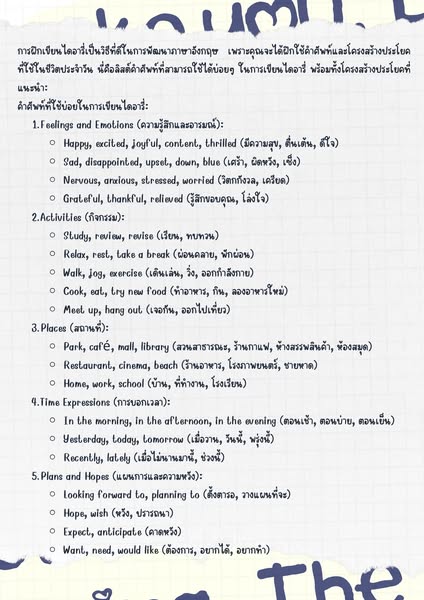 การฝึกเขียนไดอารี่เป็นวิธีที่ดีในการพัฒนาภาษาอังกฤษ เพราะคุณจะได้ฝึกใช้คำศัพท์และโครงสร้างประโยค
ที่ใช้ในชีวิตประจำวัน นี่คือลิสต์คำศัพท์ที่สามารถใช้ได้บ่อยๆ ในการเขียนไดอารี่ พร้อมทั้งโครงสร้างประโยคที่
แนะนำ:
คำศัพท์ที่ใช้บ่อยในการเขียนไดอารี่:
1. Feelings and Emotions (ความรู้สึกและอารมณ์):
○ Happy, excited, joyful, content, thrilled (มีความสุข, ตื่นเต้น, ดีใจ)
○ Sad, disappointed, upset, down, blue (เศร้า, ผิดหวัง, เซ็ง)
○ Nervous, anxious, stressed, worried (วิตกกังวล, เครียด)
○ Grateful, thankful, relieved (รู้สึกขอบคุณ, โล่งใจ)
2. Activities (กิจกรรม):
○ Study, review, revise (เรียน, ทบทวน)
○ Relax, rest, take a break (ผ่อนคลาย, พักผ่อน)
○ Walk, jog, exercise (เดินเล่น, วิ่ง, ออกกำลังกาย)
○ Cook, eat, try new food (ทำอาหาร, กิน, ลองอาหารใหม่)
○ Meet up, hang out (เจอกัน, ออกไปเที่ยว)
3. Places (สถานที่):
○ Park, café, mall, library (สวนสาธารณะ, ร้านกาแฟ, ห้างสรรพสินค้า, ห้องสมุด)
○ Restaurant, cinema, beach (ร้านอาหาร, โรงภาพยนตร์, ชายหาด)
○ Home, work, school (บ้าน, ที่ทำงาน, โรงเรียน)
4. Time Expressions (การบอกเวลา):
○ In the morning, in the afternoon, in the evening (ตอนเช้า, ตอนบ่าย, ตอนเย็น)
○ Yesterday, today, tomorrow (เมื่อวาน, วันนี้, พรุ่งนี้)
○ Recently, lately (เมื่อไม่นานมานี้, ช่วงนี้)
5. Plans and Hopes (แผนการและความหวัง):
○ Looking forward to, planning to (ตั้งตารอ, วางแผนที่จะ)
○ Hope, wish (หวัง, ปรารถนา)
○ Expect, anticipate (คาดหวัง)
○ Want, need, would like (ต้องการ, อยากได้, อยากทำ)
The